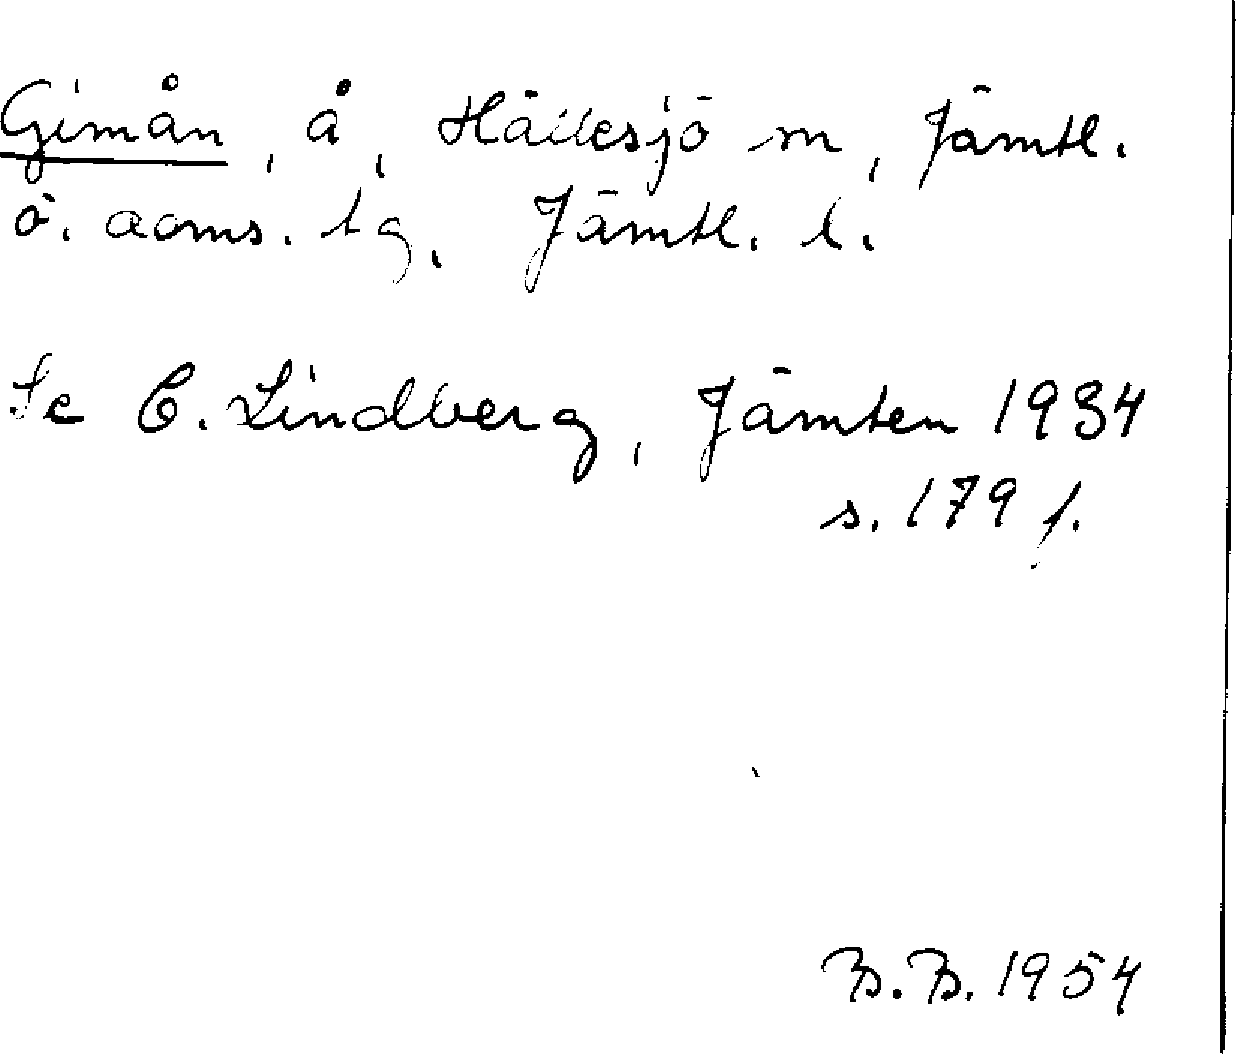 Gimån, å, Hällesjö sn, Jämtl.
ö. doms. tg. Jämtl. l.
Se C. Lindberg, Jämten 1934
s. 179 f.
B.B. 1954